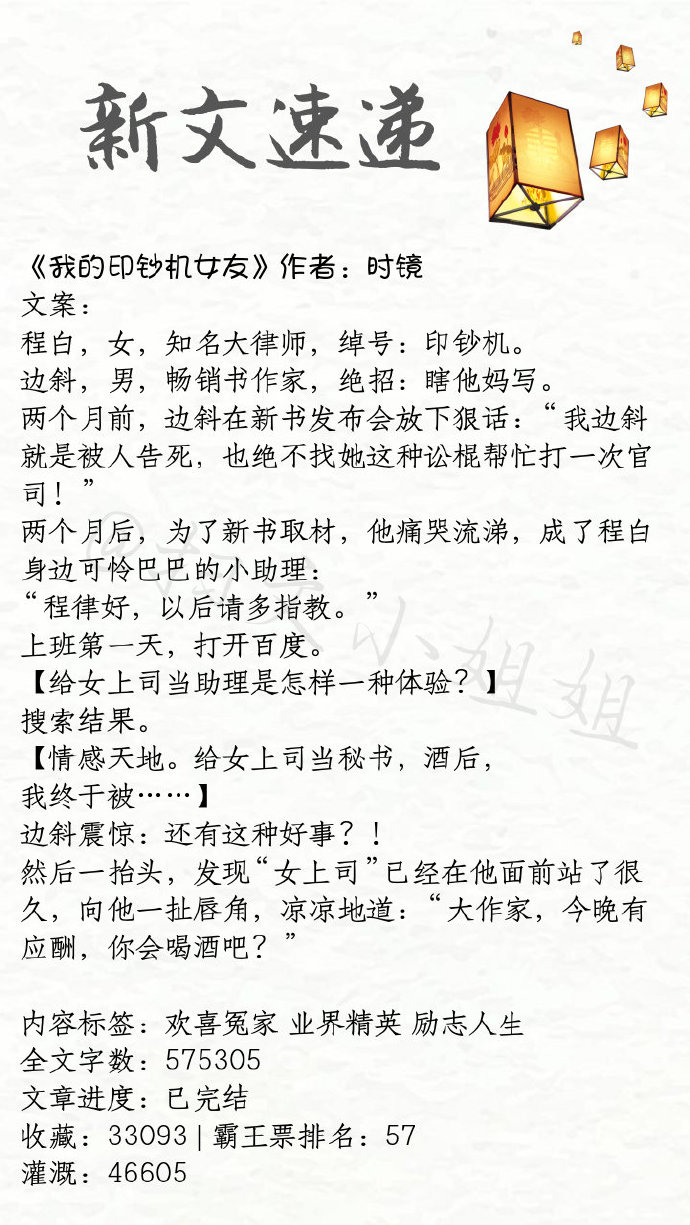 新文速递
《我的印钞机女友》作者：时镜
文案：
程白，女，知名大律师，绰号：印钞机。
边斜，男，畅销书作家，绝招：瞎他妈写。
两个月前，边斜在新书发布会放下狠话：“我边斜
就是被人告死，也绝不找她这种讼棍帮忙打一次官
司！”
两个月后，为了新书取材，他痛哭流涕，成了程白
身边可怜巴巴的小助理：
“程律好，以后请多指教。”
上班第一天，打开百度。
【给女上司当助理是怎样一种体验？】
搜索结果。
【情感天地。给女上司当秘书，酒后，
我终于被……】
边斜震惊：还有这种好事？！
然后一抬头，发现“女上司”已经在他面前站了很
久，向他一扯唇角，凉凉地道：“大作家，今晚有
应酬，你会喝酒吧？”
内容标签：欢喜冤家 业界精英 励志人生
全文字数：575305
文章进度：已完结
收藏：33093 | 霸王票排名：57
灌溉：46605
小姐姐